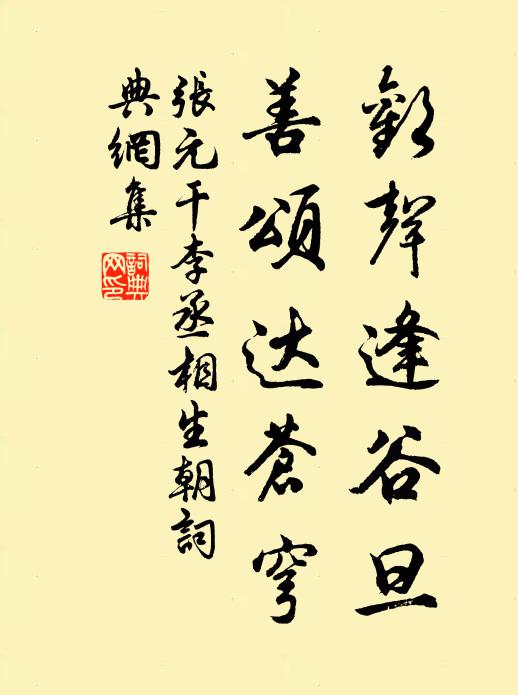 歡聲逢谷旦
善頌达蒼穹
張元干李丞相生朝詞
典網集
詞典网印